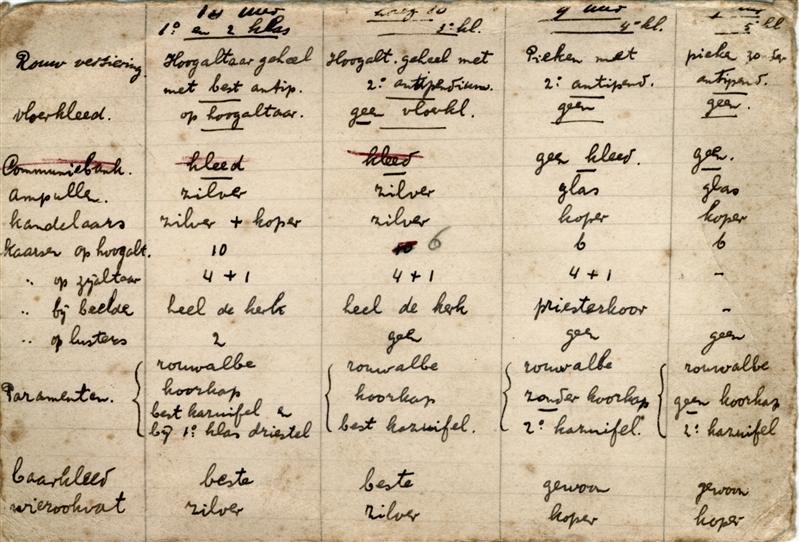 10 uur half 10 9 uur uur
1º en 2 klas 3º kl. 4º kl. 5º kl
Rouw versiering. Hoogaltaar geheel Hoogalt. geheel met Pieken met pieke zonder
met best antip. 2º antipendium. 2º antipend. antipend.
vloerkleed. op hoogaltaar. geen vloerkl. geen geen.
Communiebank. kleed kleed geen kleed. geen.
Ampulle. zilver zilver glas glas
Kandelaars zilver + koper zilver koper koper
Kaarsen op hoogalt. 10 10 6 6 6
" op zijaltaar 4 + 1 4 + 1 4 + 1 -
" bij beelde heel de kerk heel de kerk priesterkoor -
" op lusters 2 geen geen geen
rouwalbe rouwalbe rouwalbe rouwalbe
Paramenten. koorkap koorkap zonder koorkap geen koorkap
best kazuifel en best kazuifel. 2º kazuifel. 2º kazuifel
bij 1º klas driestel
baarkleed beste beste gewoon gewoon
wierookvat zilver zilver koper koper